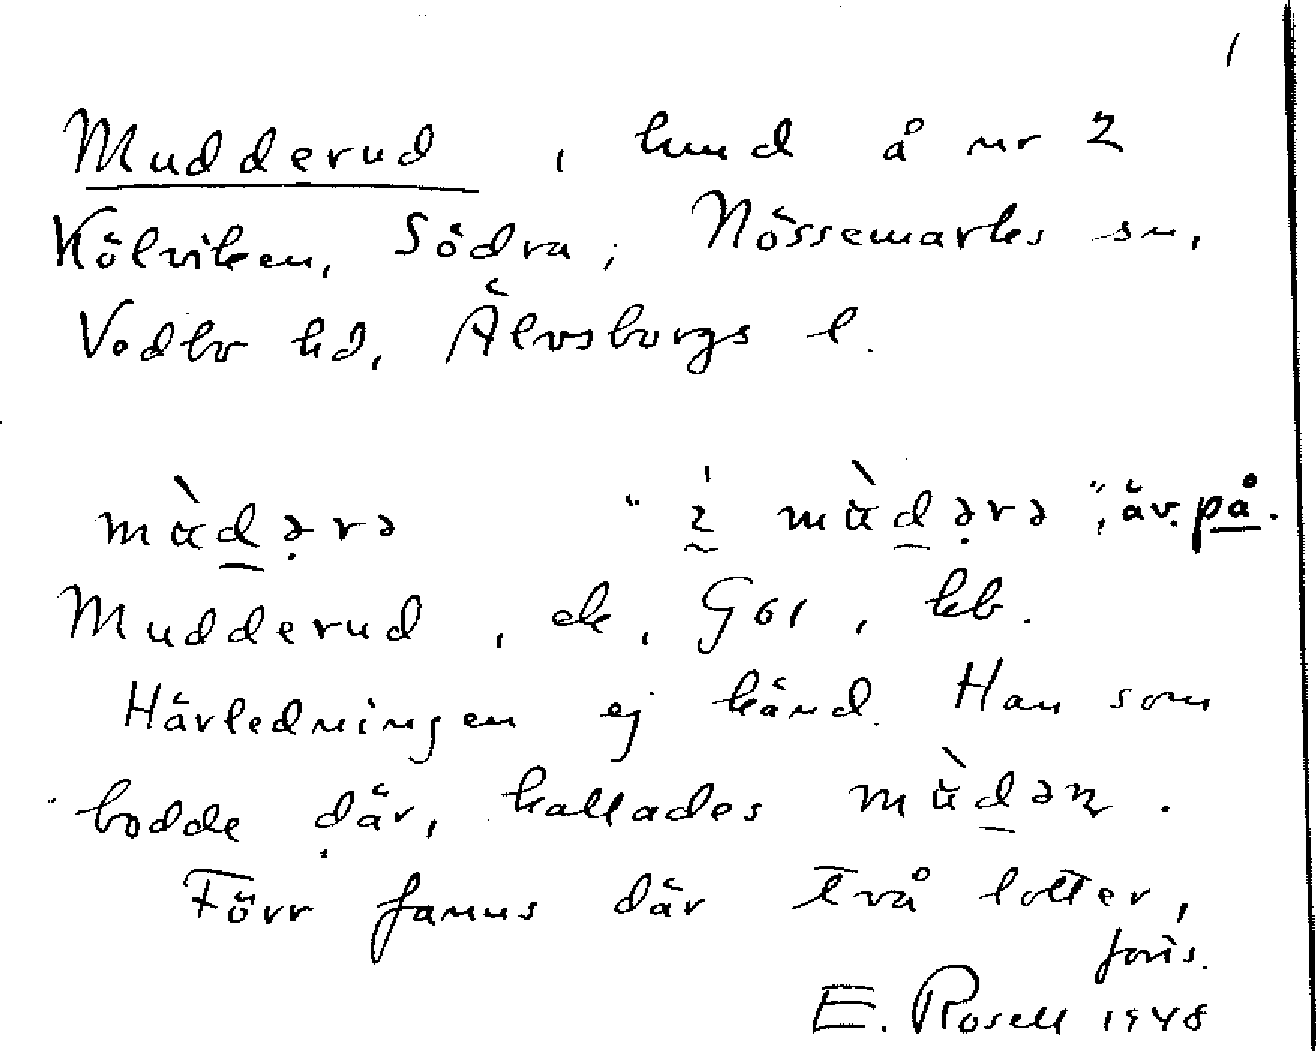 1
Mudderud, hmd å nr 2
Kölviken, Södra; Nössemarks sn,
Vedbo hd, Älvsborgs l.
mùd̠ə̣rə "i mùd̠ə̣rə", äv. på.
Mudderud, ek, G61, kb.
Härledningen ej känd. Han som
bodde där, kallades mùd̠ən.
Förr fanns där två lotter,
forts.
E. Rosell 1948